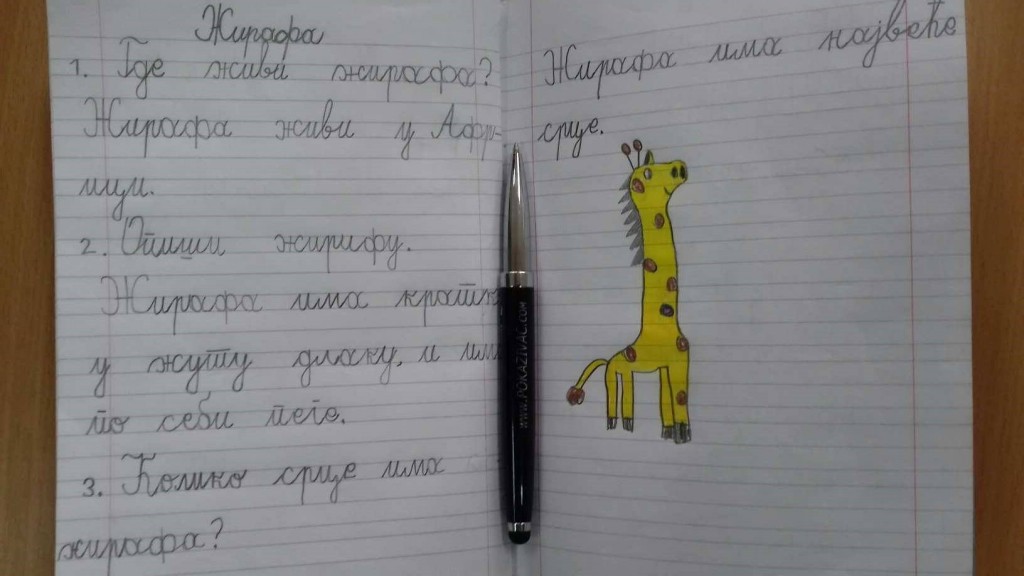 Жирафа
1. Где живи жирафа?
Жирафа живи у Афри-
ици.
2. Опиши жирафу.
Жирафа има кратк
у жуту длаку, и има
по себи пеге.
3. Колико срце има
жирафа?
Жирафа има највеће
срце.
WWW.POKAZIVAC.COM